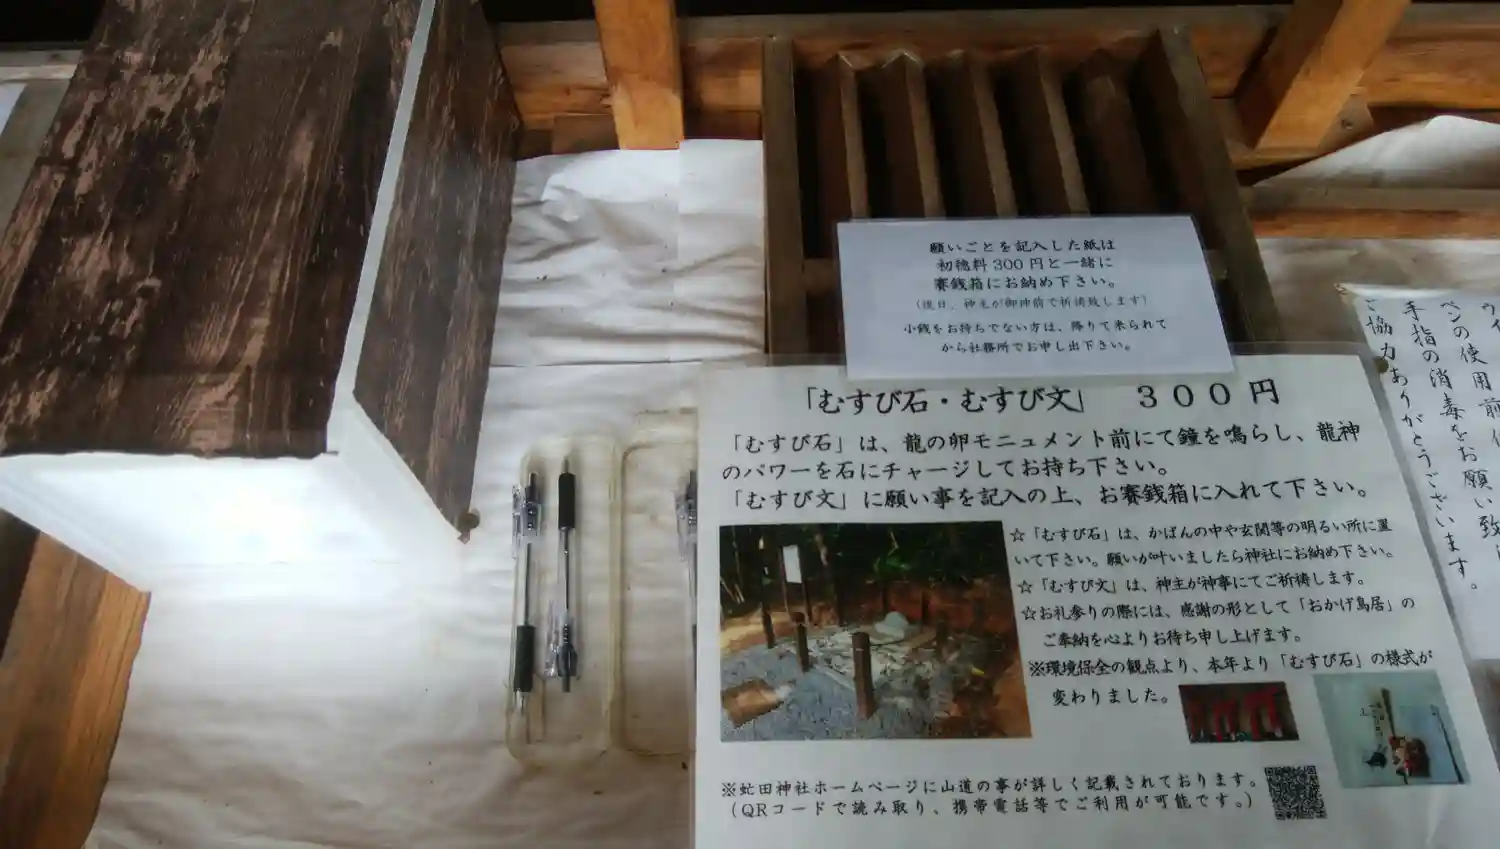 願いごとを記入した紙は
初穂料300円と一緒に
賽銭箱にお納め下さい。
(後日、神主が御神前で祈祷致します)
小銭をお持ちでない方は、降りて来られて
から社務所でお申し出下さい。
「むすび石・むすび文」 300円
「むすび石」は、龍の卵モニュメント前にて鐘を鳴らし、龍神
のパワーを石にチャージしてお持ち下さい。
「むすび文」に願い事を記入の上、お賽銭箱に入れて下さい。
☆「むすび石」は、かばんの中や玄関等の明るい所に置
いて下さい。願いが叶いましたら神社にお納め下さい。
☆「むすび文」は、神主が神事にてご祈祷します。
☆お礼参りの際には、感謝の形として「おかげ鳥居」の
ご奉納を心よりお待ち申し上げます。
※環境保全の観点より、本年より「むすび石」の様式が
変わりました。
※虻田神社ホームページに山道の事が詳しく記載されております。
(QRコードで読み取り、携帯電話等でご利用が可能です。)
ペンの使用前
手指の消毒をお願い致
ご協力ありがとうございます。